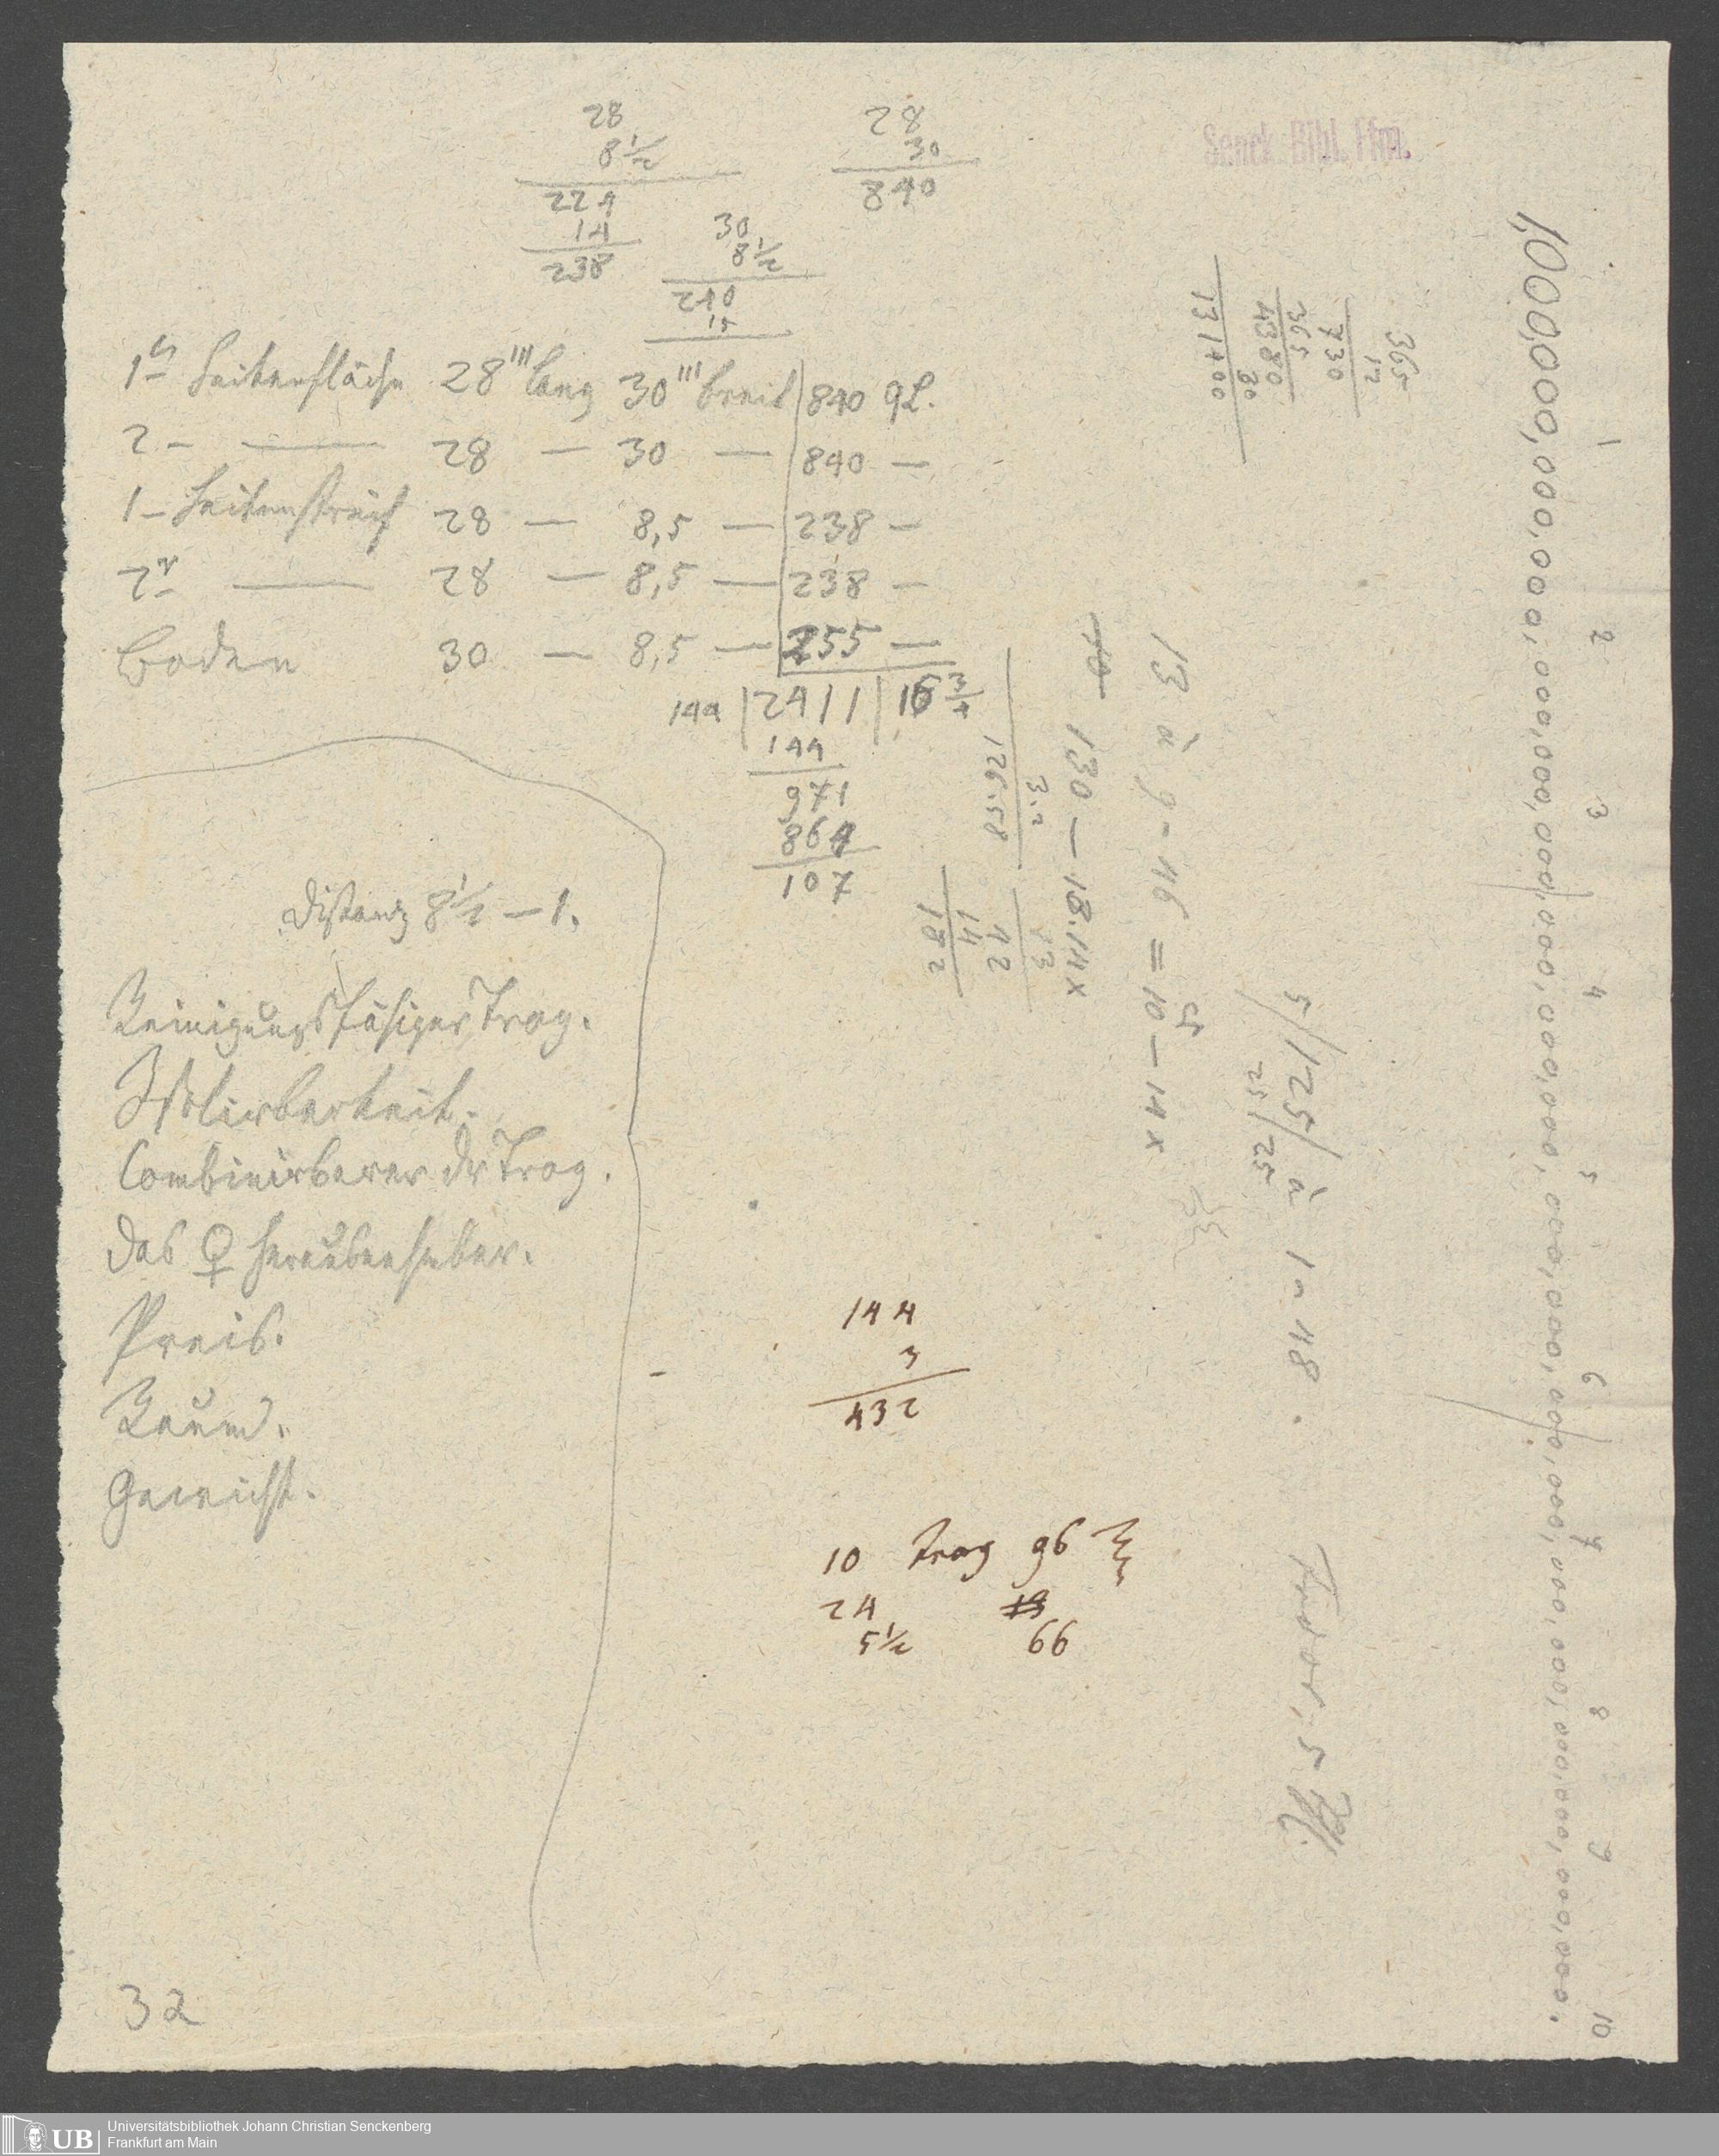 28
8½
224
14
238
28
30
840
30
8½
240
15
Senck. Bibl. Ffm.
1te Seitenfläche 28''' lang 30''' breit 840 qL.
2 – — 28 — 30 — 840 —
1 – Seitenstreif 28 — 8,5 — 238 —
2r — 28 — 8,5 — 238 —
Boden 30 — 8,5 — 255 —
144 | 2411 | 16 ¾
144
971
864
107
Distanz 8½ — 1.
Reinigungsfähiger Trog.
Isolirbarkeit.
Combinirbarer dr Trog.
das ♀ heraubenheber.
Preis.
Raum.
Gewicht.
144
3
432
10 trog 96
24
5½ 66
365
12
730
365
4380
30
131400
13 à 9 - 46 = 10 — 14 x
130 — 18.14 x
126.58
13
42
14
182
5/125/ à 1 - 48.
25/25
1,000,000,000,000,000,000,000,000,000,000,000,000,000,000,000,000,000,000,000,000.
1 2 3 4 5 6 7 8 9 10
32
UB
Universitätsbibliothek Johann Christian Senckenberg
Frankfurt am Main